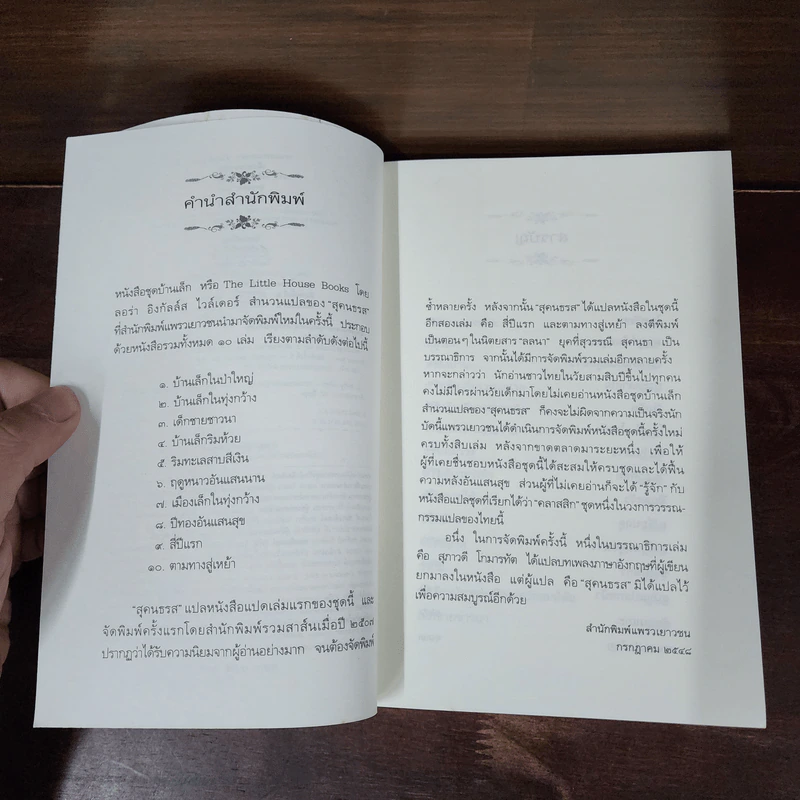 คำนำสำนักพิมพ์
หนังสือชุดบ้านเล็ก หรือ The Little House Books โดย
ลอร่า อิงกัลล์ส ไวล์เดอร์ สำนวนแปลของ “สุคนธรส”
ที่สำนักพิมพ์แพรวเยาวชนนำมาจัดพิมพ์ใหม่ในครั้งนี้ ประกอบ
ด้วยหนังสือรวมทั้งหมด ๑๐ เล่ม เรียงตามลำดับดังต่อไปนี้
๑. บ้านเล็กในป่าใหญ่
๒. บ้านเล็กในทุ่งกว้าง
๓. เด็กชายชาวนา
๔. บ้านเล็กริมห้วย
๕. ริมทะเลสาบสีเงิน
๖. ฤดูหนาวอันแสนนาน
๗. เมืองเล็กในทุ่งกว้าง
๘. ปีทองอันแสนสุข
๙. สี่ปีแรก
๑๐. ตามทางสู่เหย้า
“สุคนธรส” แปลหนังสือแปดเล่มแรกของชุดนี้ และ
จัดพิมพ์ครั้งแรกโดยสำนักพิมพ์รวมสาส์นเมื่อปี ๒๕๐๗
ปรากฏว่าได้รับความนิยมจากผู้อ่านอย่างมาก จนต้องจัดพิมพ์
ซ้ำหลายครั้ง หลังจากนั้น “สุคนธรส” ได้แปลหนังสือในชุดนี้
อีกสองเล่ม คือ สี่ปีแรก และตามทางสู่เหย้า ลงตีพิมพ์
เป็นตอนๆ ในนิตยสาร “ลลนา” ยุคที่สุวรรณี สุคนธา เป็น
บรรณาธิการ จากนั้นได้มีการจัดพิมพ์รวมเล่มอีกหลายครั้ง
หากจะกล่าวว่า นักอ่านชาวไทยในวัยสามสิบปีขึ้นไปทุกคน
คงไม่มีใครผ่านวัยเด็กมาโดยไม่เคยอ่านหนังสือชุดบ้านเล็ก
สำนวนแปลของ “สุคนธรส” ก็คงจะไม่ผิดจากความเป็นจริงนัก
บัดนี้แพรวเยาวชนได้ดำเนินการจัดพิมพ์หนังสือชุดนี้ครั้งใหม่
ครบทั้งสิบเล่ม หลังจากขาดตลาดมาระยะหนึ่ง เพื่อให้
ผู้ที่เคยชื่นชอบหนังสือชุดนี้ได้สะสมให้ครบชุดและได้ฟื้น
ความหลังอันแสนสุข ส่วนผู้ที่ไม่เคยอ่านก็จะได้ “รู้จัก” กับ
หนังสือแปลชุดที่เรียกได้ว่า “คลาสสิก” ชุดหนึ่งในวงการวรรณ-
กรรมแปลของไทยนี้
อนึ่ง ในการจัดพิมพ์ครั้งนี้ หนึ่งในบรรณาธิการเล่ม
คือ สุภาวดี โกมารทัต ได้แปลบทเพลงภาษาอังกฤษที่ผู้เขียน
ยกมาลงในหนังสือ แต่ผู้แปล คือ “สุคนธรส” มิได้แปลไว้
เพื่อความสมบูรณ์อีกด้วย
สำนักพิมพ์แพรวเยาวชน
กรกฎาคม ๒๕๔๘